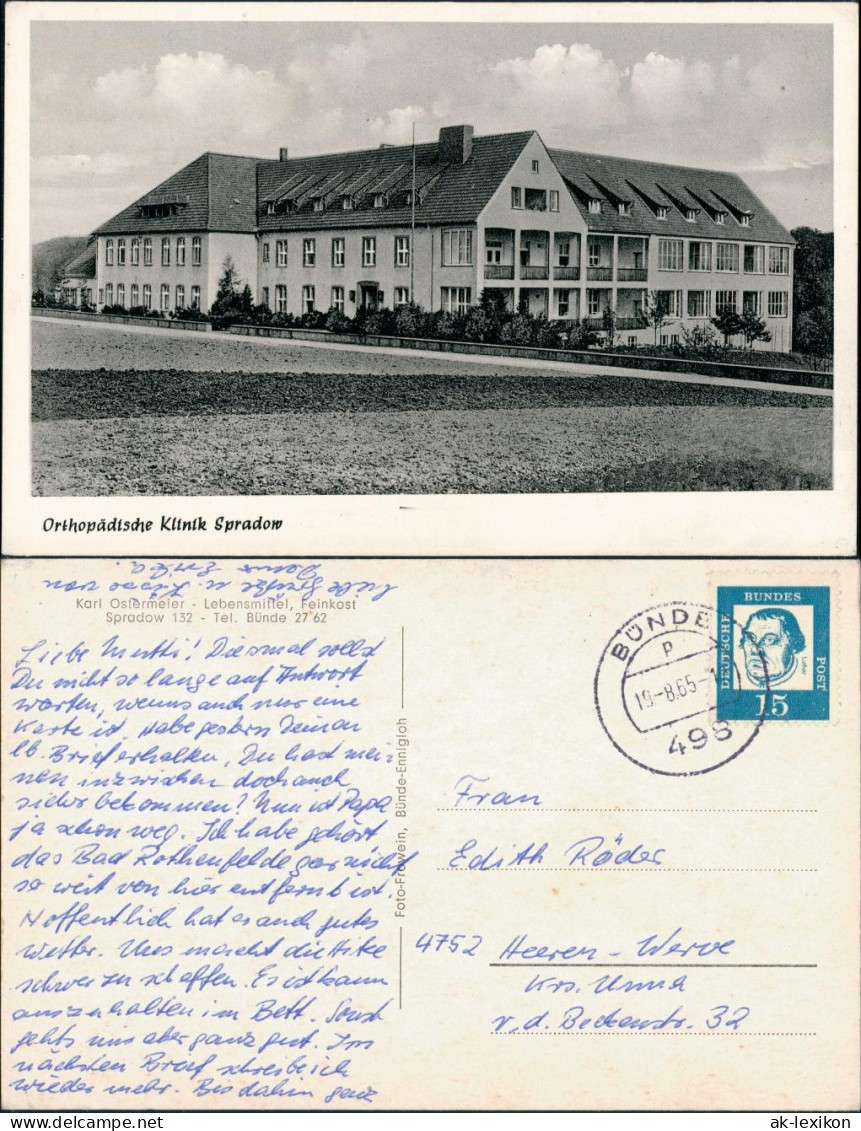 Orthopädische Klinik Spradow
Karl Ostermeier - Lebensmittel, Feinkost
Spradow 132 - Tel. Bünde 27 62
Liebe Mutti! Diesmal sollst
Du nicht so lange auf Antwort
warten, wenns auch nur eine
Karte ist. Habe gestern Deinen
lb. Brief erhalten, Du hast mei-
nen inzwischen doch auch
sicher bekommen? Nun ist Papa
ja schon weg. Ich habe gehört
das Bad Rothenfelde gar nicht
so weit von hier entfernt ist.
Hoffentlich hat er auch gutes
Wetter. Uns macht die Hitze
schwer zu schaffen. Es ist kaum
auszuhalten im Bett. Sonst
gehts uns aber ganz gut. Im
nächsten Brief schreibe ich
wieder mehr. Bis dahin ganz
liebe Grüße u. Küsse von
Deiner Erika.
Foto-Frowein, Bünde-Ennigloh
BÜNDE
p
19.-8.65.-1
498
DEUTSCHE
BUNDES
POST
Luther
15
Frau
Edith Röder
4752 Heeren-Werve
Krs. Unna
v. d. Beckenstr. 32
ak-lexikon